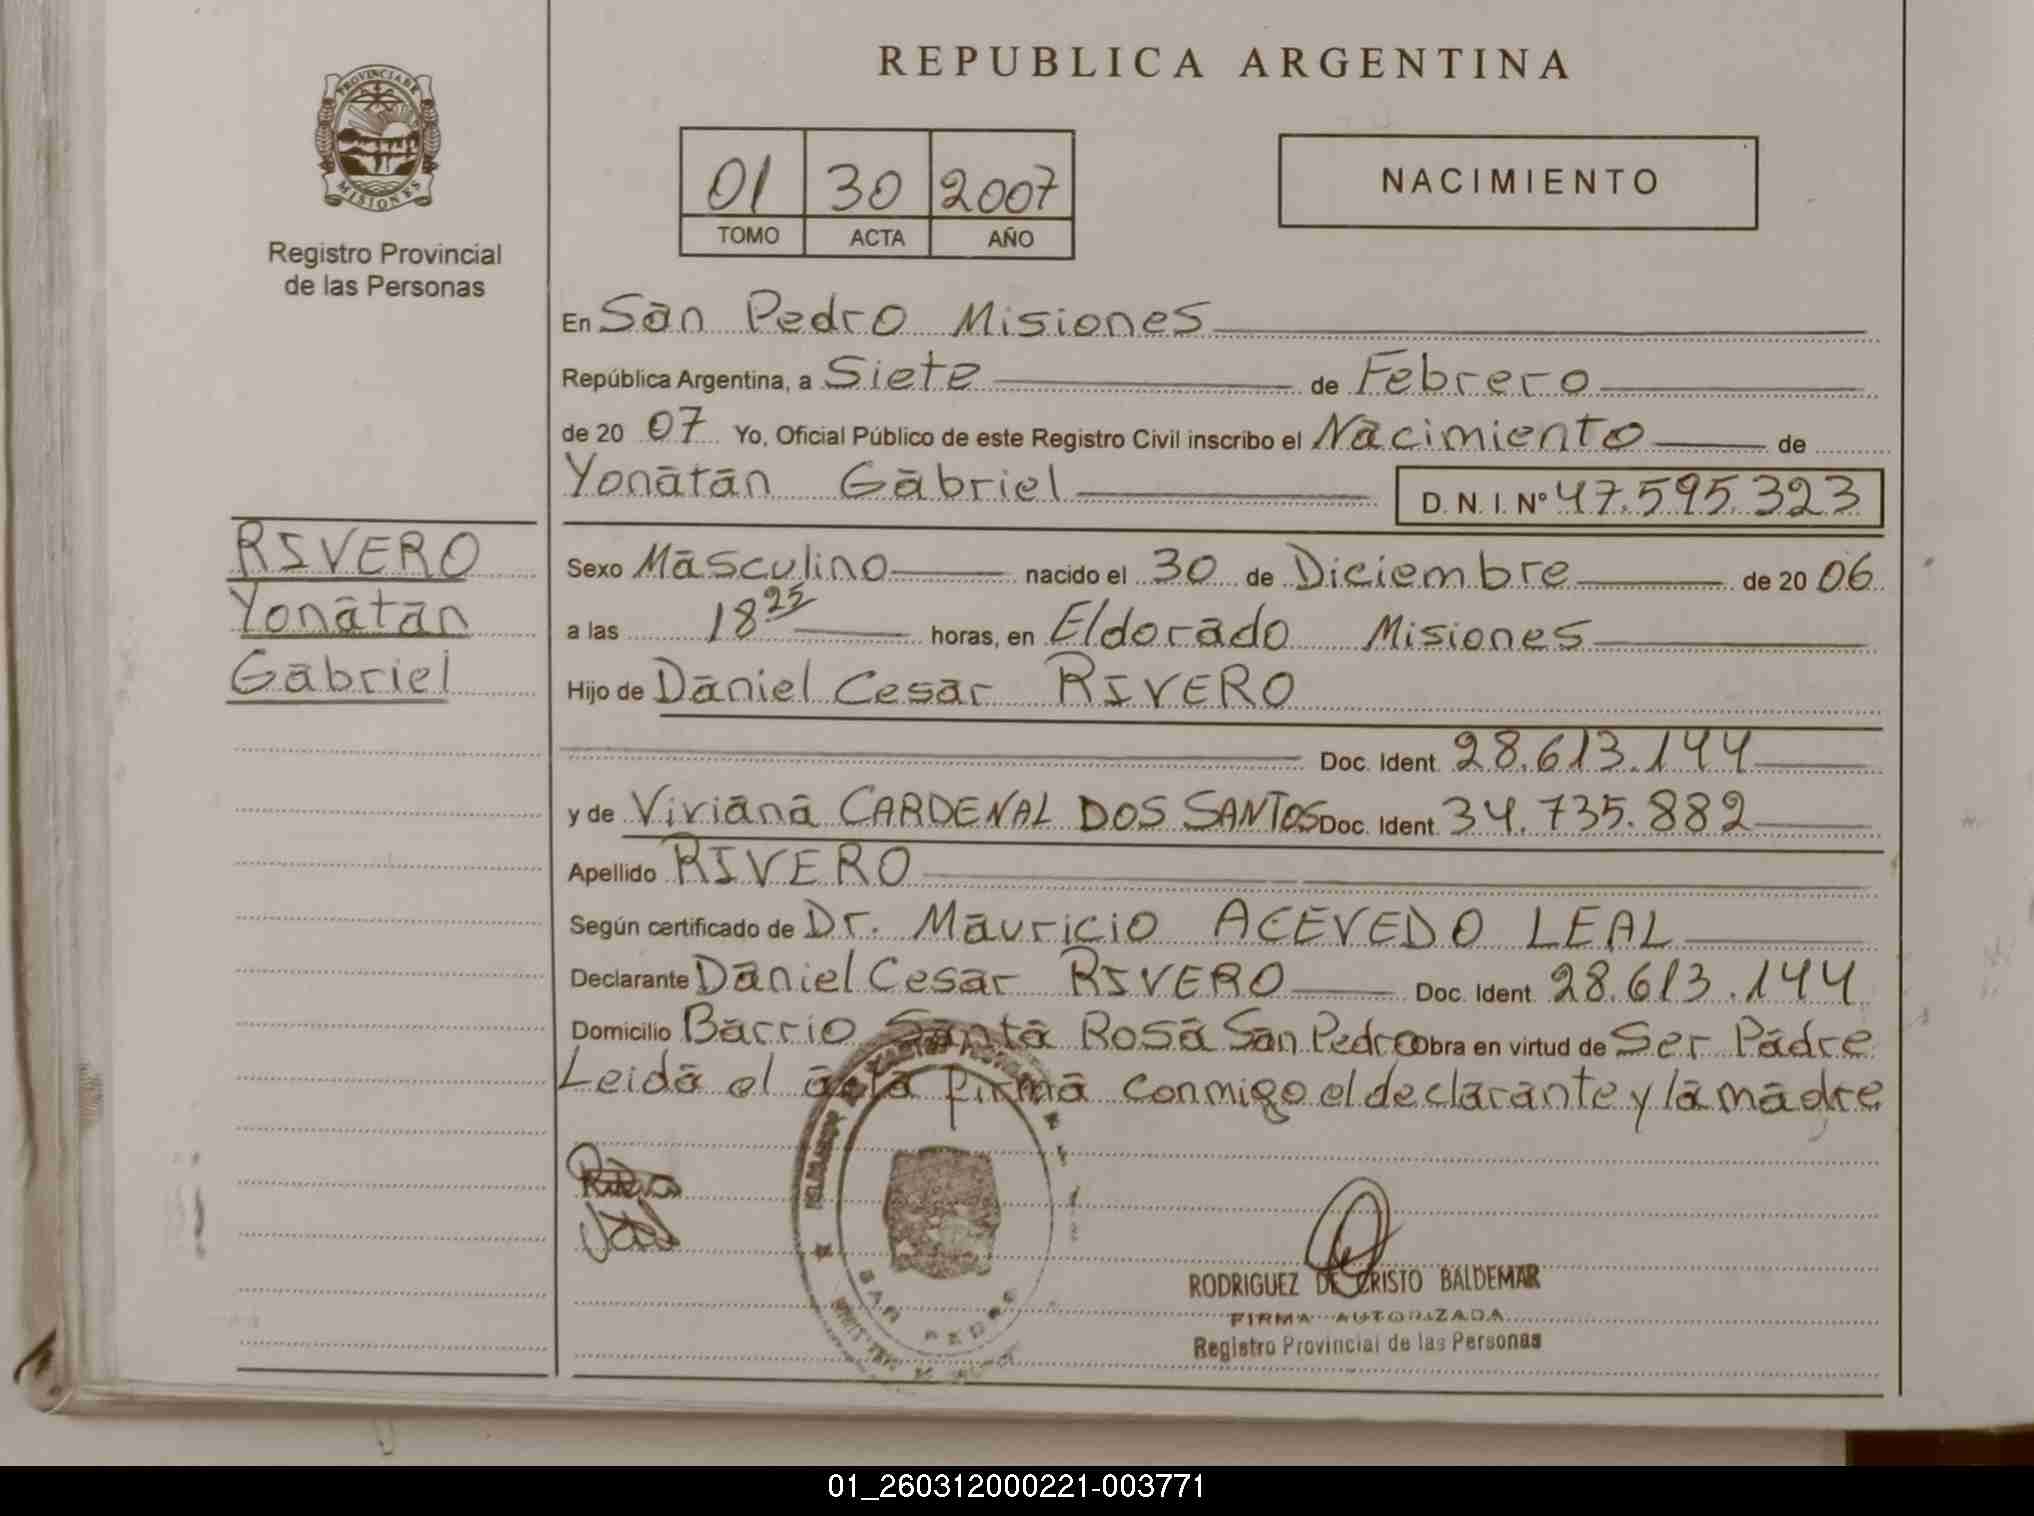 REPUBLICA ARGENTINA
PROVINCIA DE
MISIONES
Registro Provincial
de las Personas
01 30 2007
TOMO ACTA AÑO
NACIMIENTO
En San Pedro Misiones
República Argentina, a Siete de Febrero
de 20 07 Yo, Oficial Público de este Registro Civil inscribo el Nacimiento de
Yonatan Gabriel D. N. I. Nº 47.595.323
RIVERO
Yonatan
Gabriel
Sexo Masculino nacido el 30 de Diciembre de 20 06
a las 18 25 horas, en Eldorado Misiones
Hijo de Daniel Cesar RIVERO
Doc. Ident. 28.613.144
y de Viviana CARDENAL DOS SANTOS Doc. Ident. 34.735.882
Apellido RIVERO
Según certificado de Dr. Mauricio ACEVEDO LEAL
Declarante Daniel Cesar RIVERO Doc. Ident. 28.613.144
Domicilio Barrio Santa Rosa San Pedro Obra en virtud de Ser Padre
Leida el acta firma conmigo el declarante y la madre
SAN PEDRO
RODRIGUEZ DE CRISTO BALDEMAR
FIRMA AUTORIZADA
Registro Provincial de las Personas
01_260312000221-003771